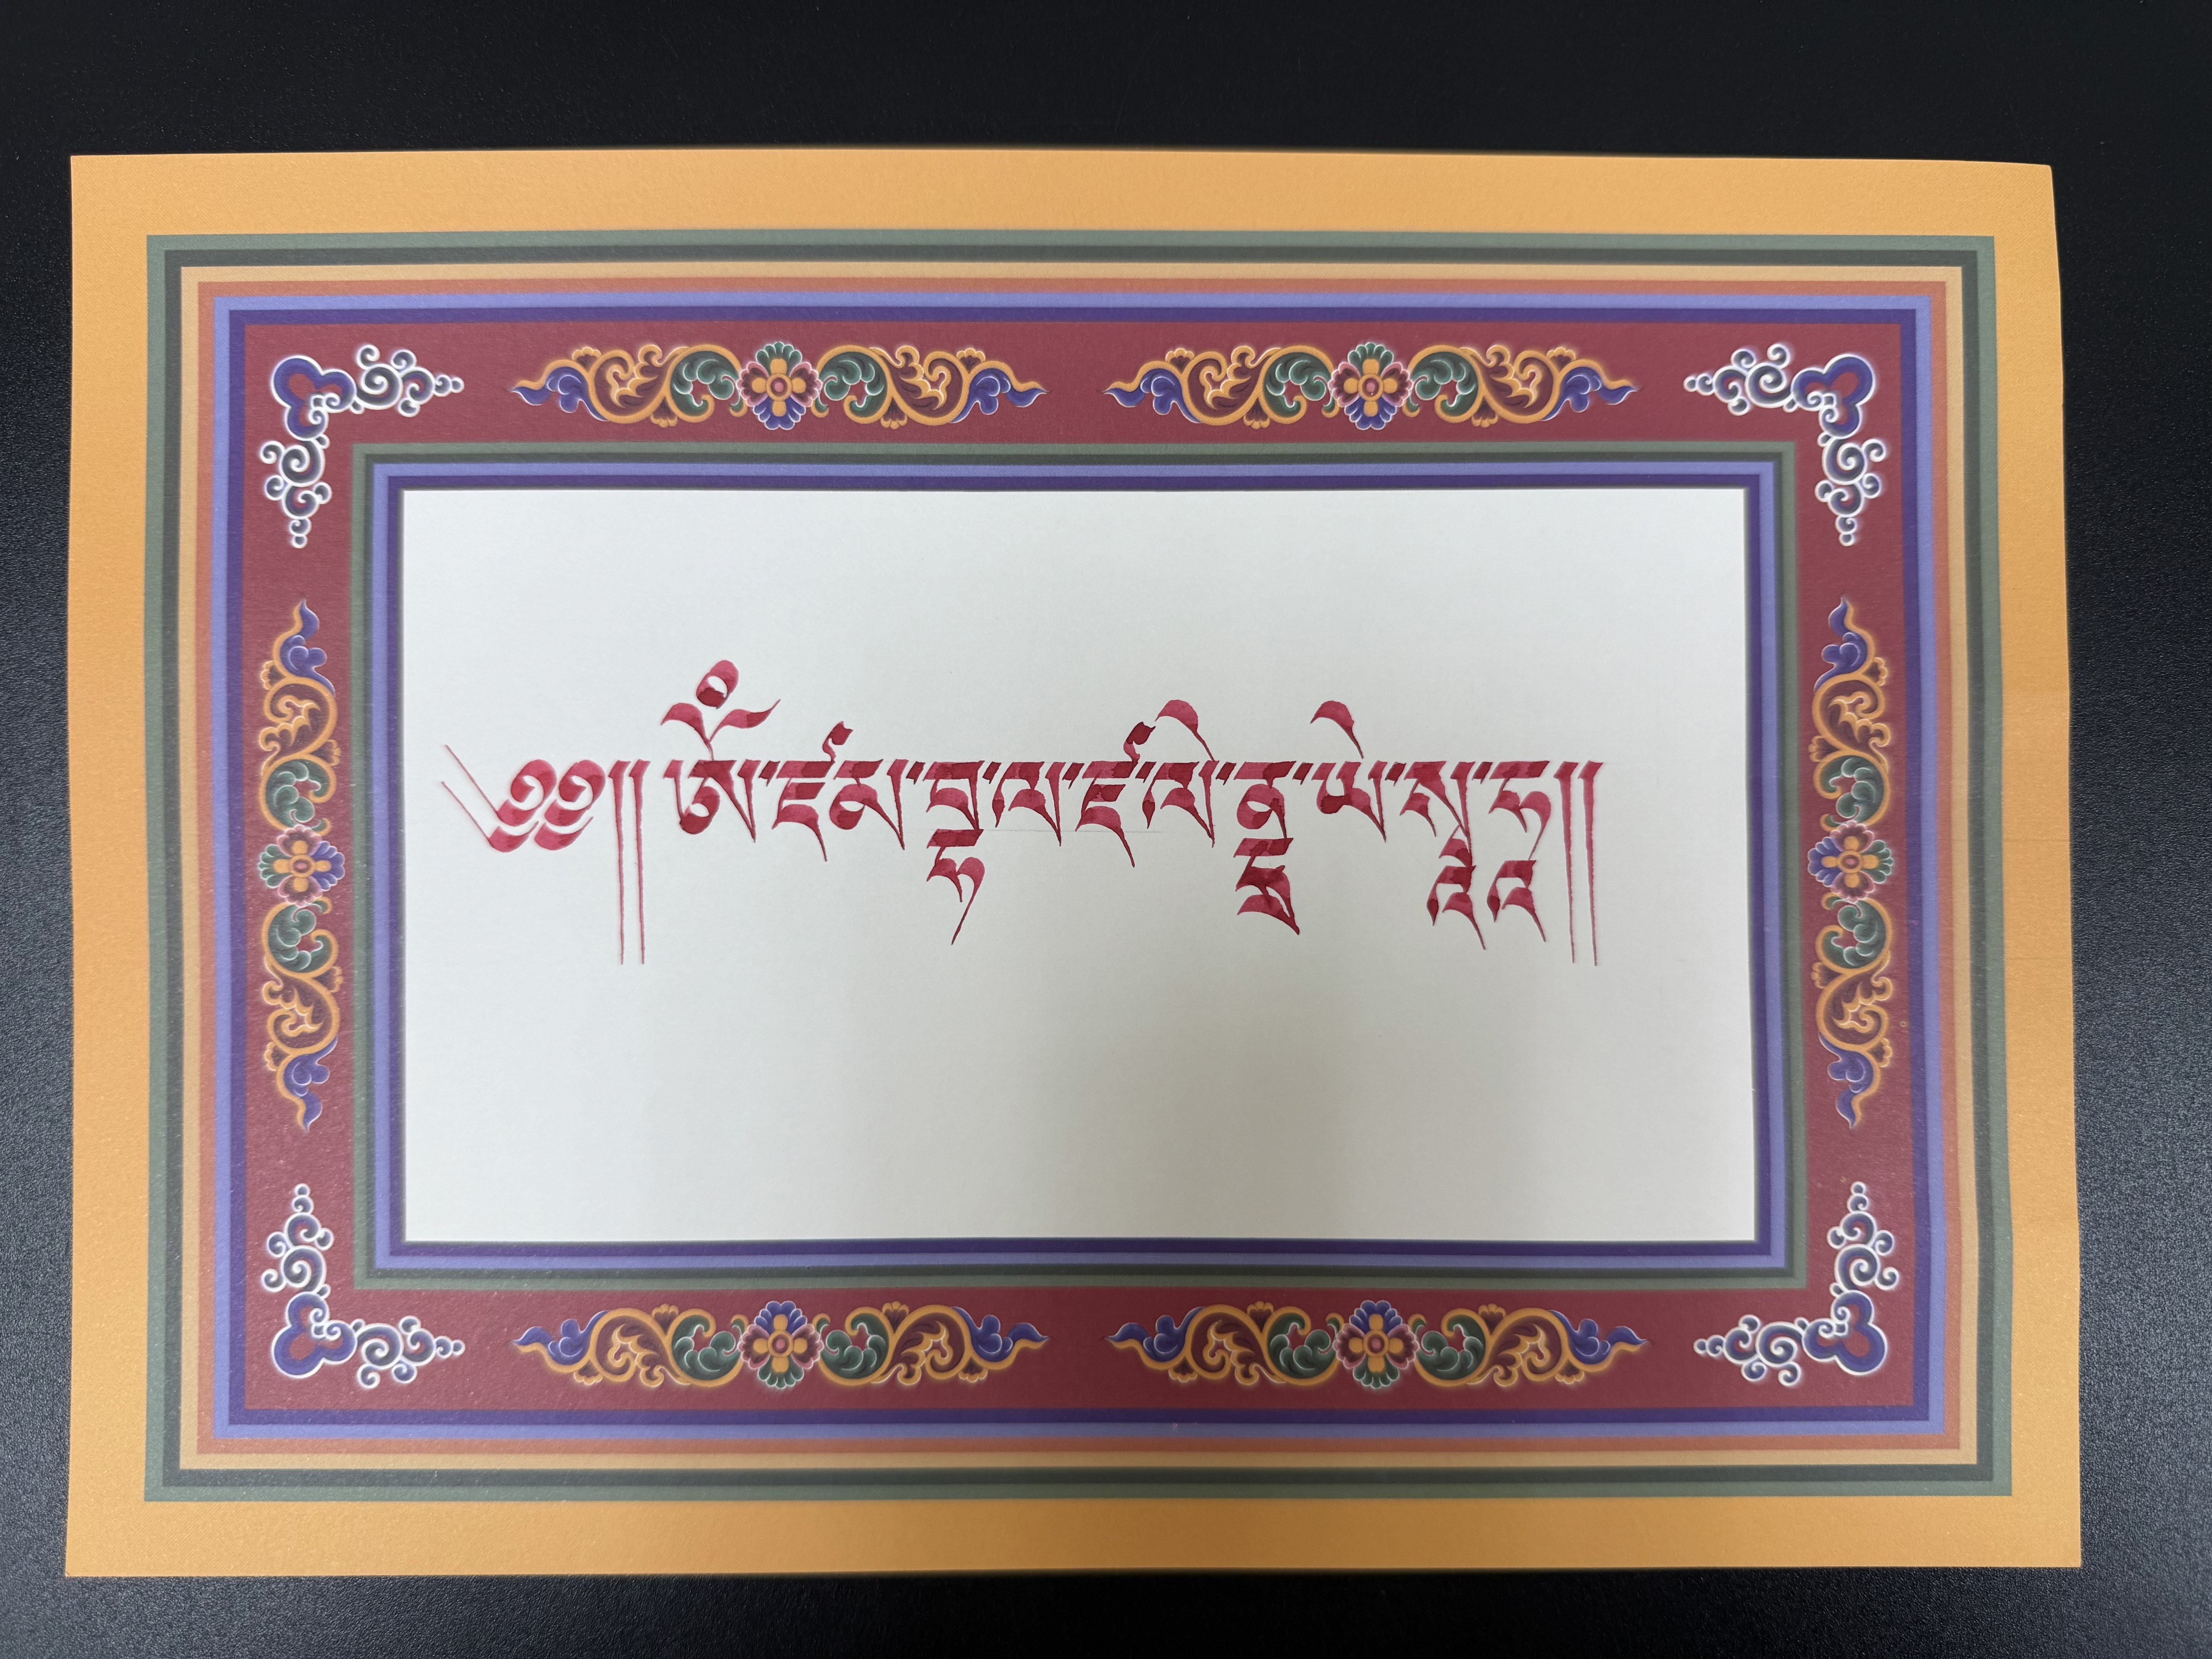 ༄༅།། ཨོཾ་ཛམ་བྷ་ལ་ཛལེ་ནྡྲ་ཡེ་སྭཱ་ཧཱ།།